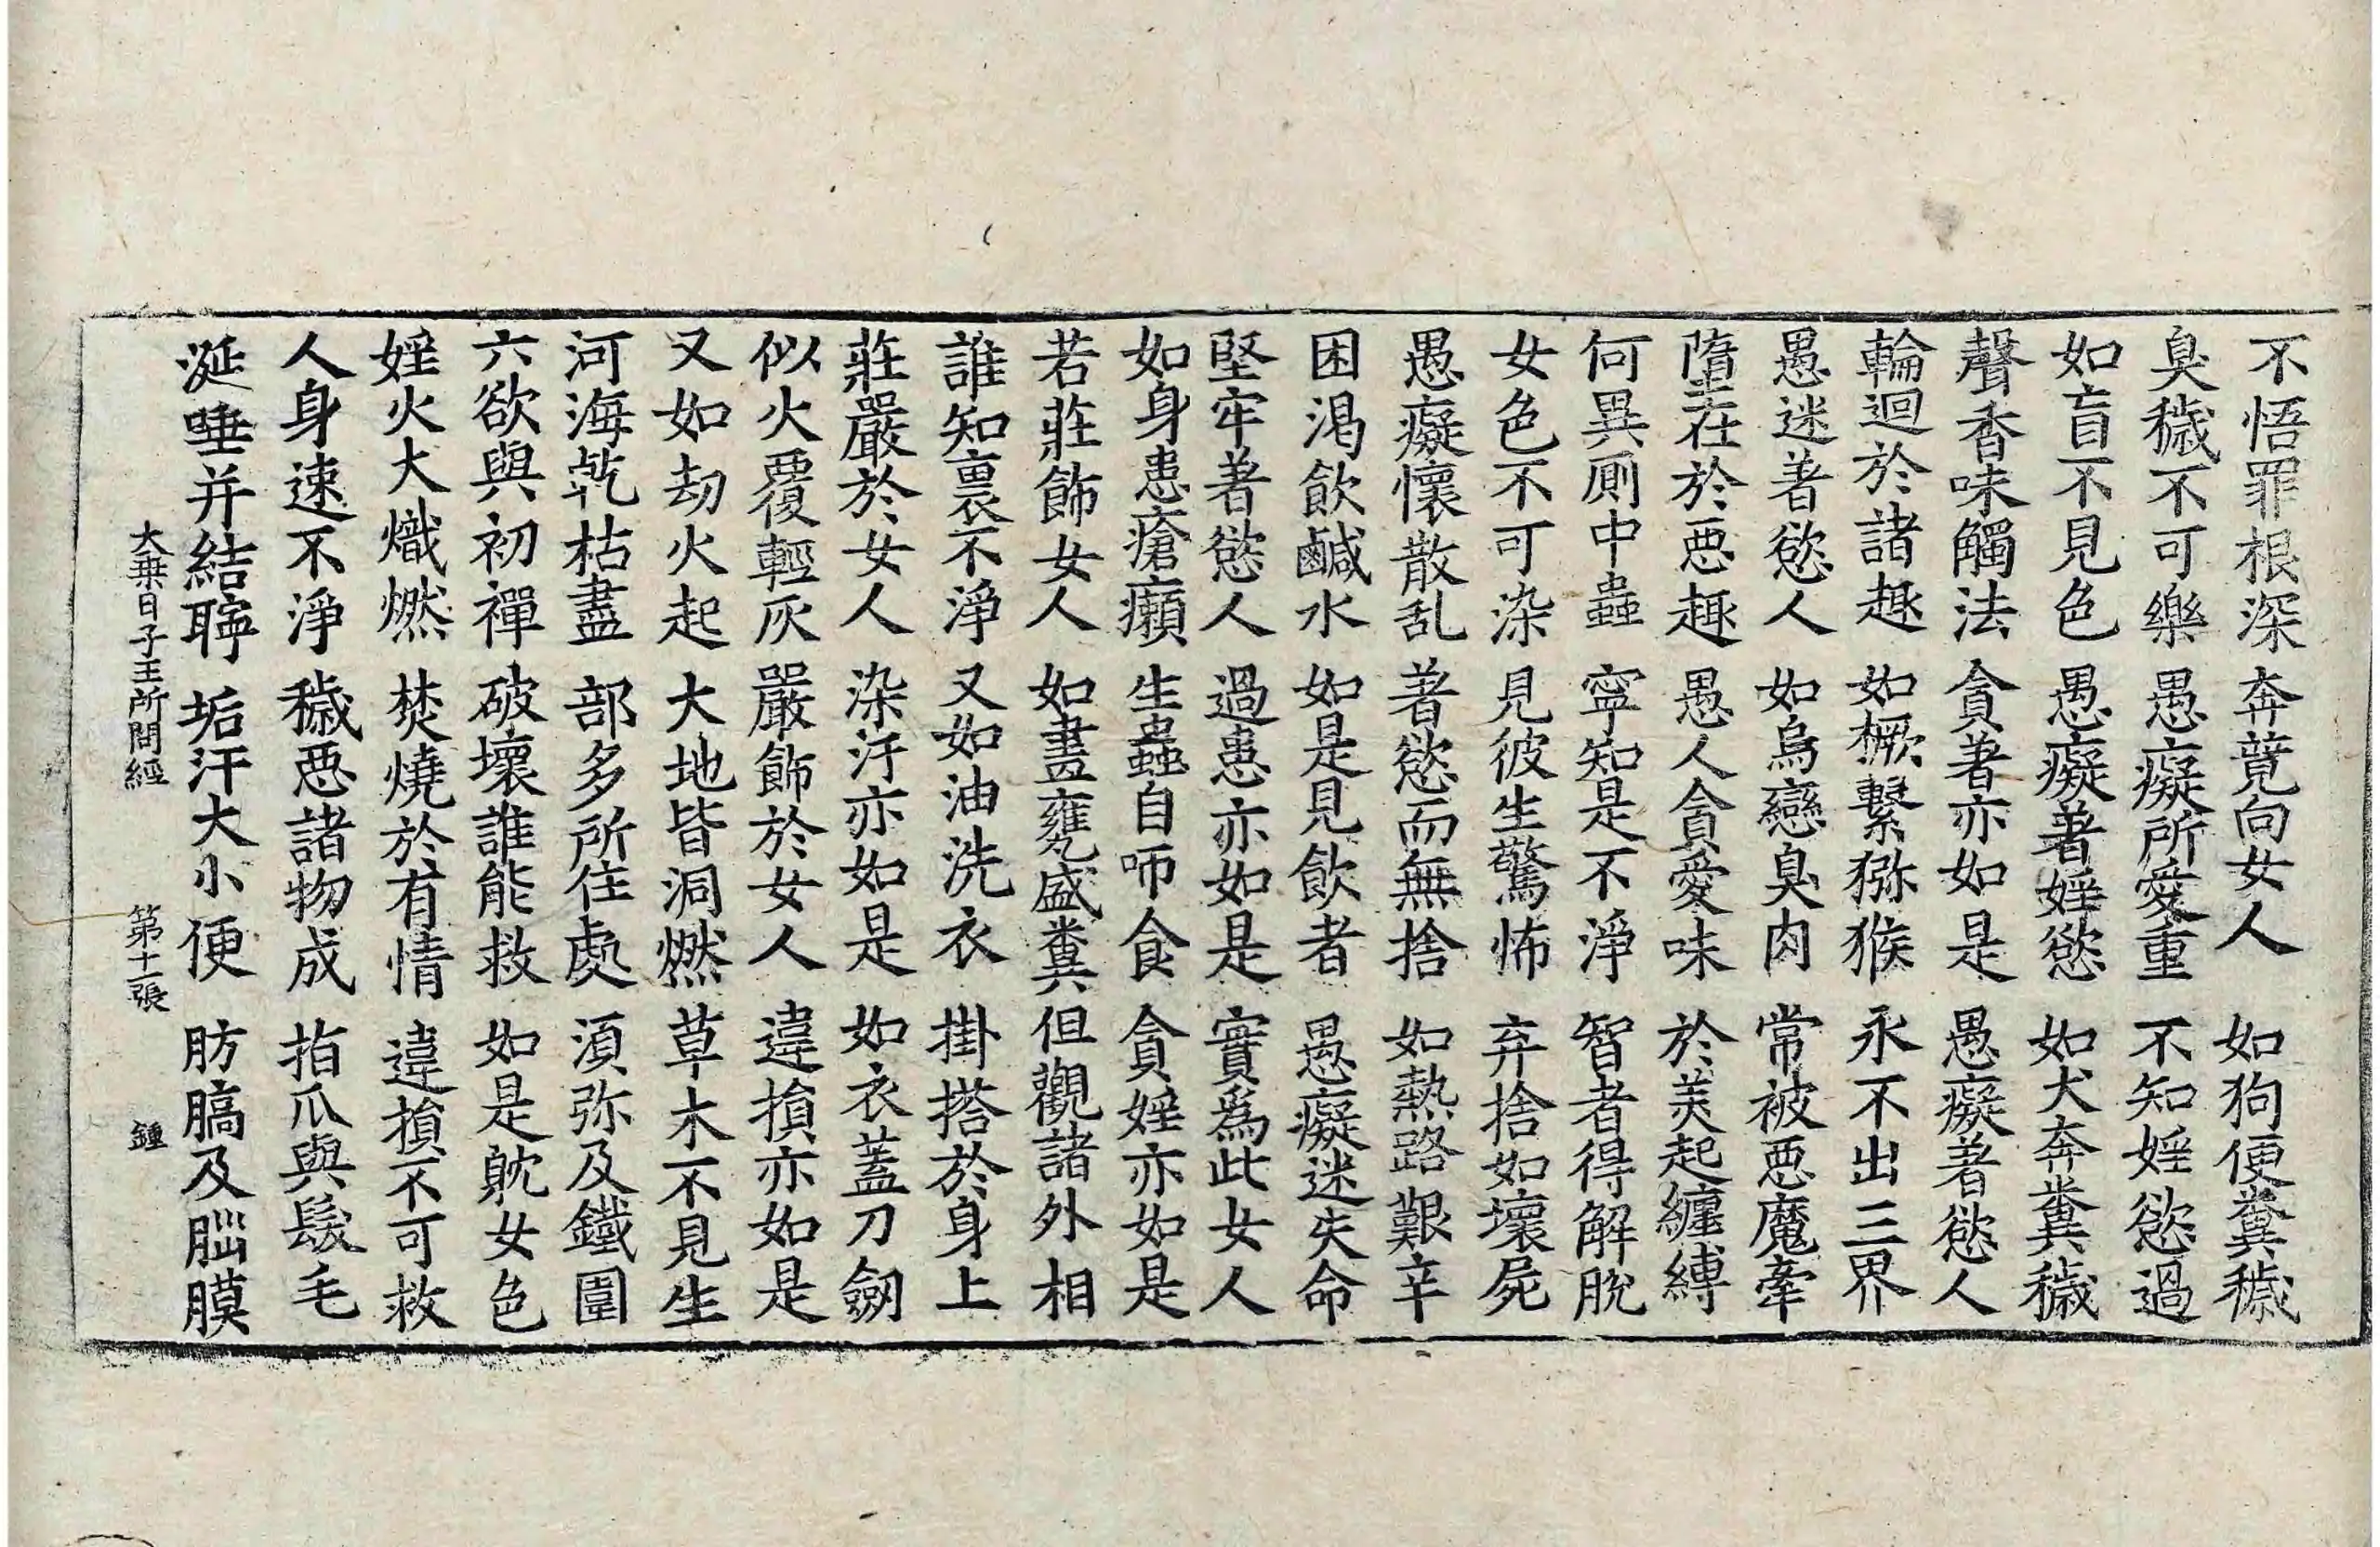 不悟罪根深 奔競向女人 如狗便糞穢
臭穢不可樂 愚癡所愛重 不知婬慾過
如盲不見色 愚癡著婬慾 如犬奔糞穢
聲香味觸法 貪著亦如是 愚癡著慾人
輪迴於諸趣 如橛繫猕猴 永不出三界
愚迷著慾人 如烏戀臭肉 常被惡魔牽
墮在於惡趣 愚人貪愛味 於美起纏縛
何異厠中蟲 寧知是不淨 智者得解脫
女色不可染 見彼生驚怖 弃捨如壞屍
愚癡懷散乱 著慾而無捨 如熱路艱辛
困渴飲鹹水 如是見飲者 愚癡迷失命
堅牢著慾人 過患亦如是 實爲此女人
如身患瘡癩 生蟲自咂食 貪婬亦如是
若莊飾女人 如畫甕盛糞 但觀諸外相
誰知裏不淨 又如油洗衣 掛搭於身上
莊嚴於女人 染汙亦如是 如衣蓋刀劒
似火覆輕灰 嚴飾於女人 違損亦如是
又如劫火起 大地皆洞燃 草木不見生
河海乹枯盡 部多所住處 須弥及鐵圍
六欲與初禪 破壞誰能救 如是躭女色
婬火大熾燃 焚燒於有情 違損不可救
人身速不淨 穢惡諸物成 指爪與髮毛
涎唾并結聹 垢汗大小便 肪膏及腦膜
大乗日子王所問經 第十一張 鍾